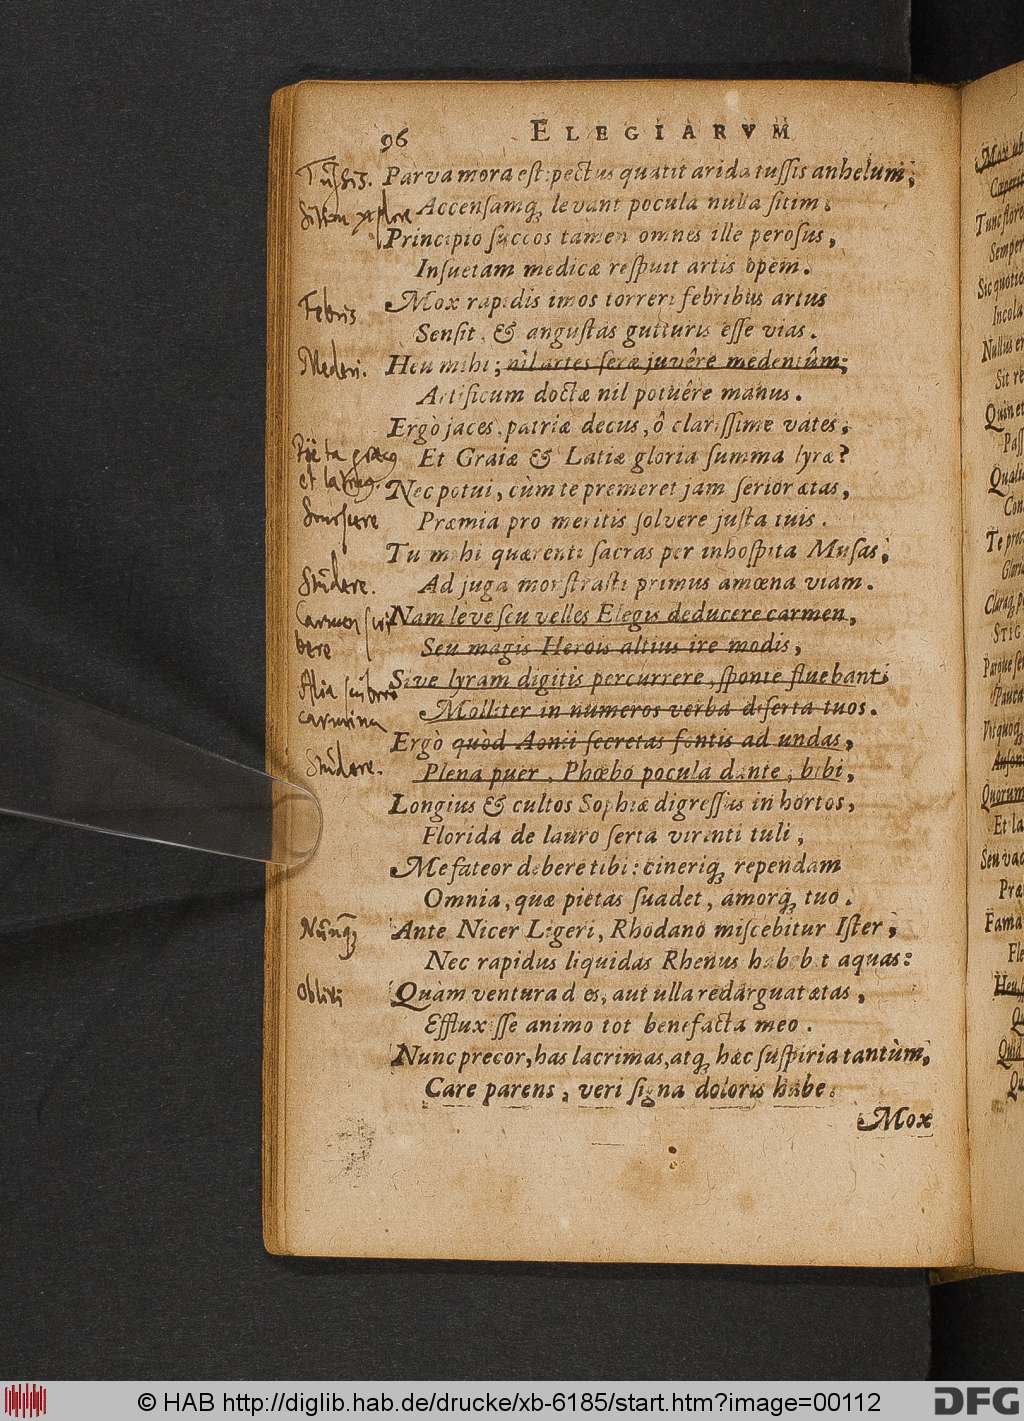 96 ELEGIARVM
Tussis. Parva mora est: pectus quatit arida tussis anhelum;
Accensamq́ue levant pocula nulla sitim.
Principio succos tamen omnes ille perosus,
Insuetam medicæ respuit artis opem.
Febris Mox rapidis imos torreri febribus artus
Sensit, & angustas gutturis esse vias.
Mederi. Heu mihi; nil artes seræ juvêre medentûm;
Artificum doctæ nil potuêre manus.
Ergò jaces, patriæ decus, ô clarissime vates,
Poëta græcus Et Graiæ & Latiæ gloria summa lyræ?
et latinus. Nec potui, cùm te premeret jam serior ætas,
Præmia pro meritis solvere justa tuis.
Tu mihi quærenti sacras per inhospita Musas,
Studere. Ad juga monstrasti primus amœna viam.
Carmen scri Nam leve seu velles Elegis deducere carmen,
bere Seu magis Herois altius ire modis,
Alia scribere Sive lyram digitis percurrere, sponte fluebant
carmina Molliter in numeros verba diserta tuos.
Ergò quòd Aonii secretas fontis ad undas,
Studere. Plena puer, Phœbo pocula dante, bibi,
Longius & cultos Sophiæ digressus in hortos,
Florida de lauro serta virenti tuli,
Me fateor debere tibi: cineriq́ue rependam
Omnia, quæ pietas suadet, amorq́ue tuo.
Nunquam Ante Nicer Ligeri, Rhodano miscebitur Ister,
Nec rapidus liquidas Rhenus habebit aquas:
Oblivi Quàm ventura dies, aut ulla redarguat ætas,
Effluxisse animo tot benefacta meo.
Nunc precor, has lacrimas, atq́ue hæc suspiria tantùm,
Care parens, veri signa doloris habe.
Mox
© HAB http://diglib.hab.de/drucke/xb-6185/start.htm?image=00112
DFG